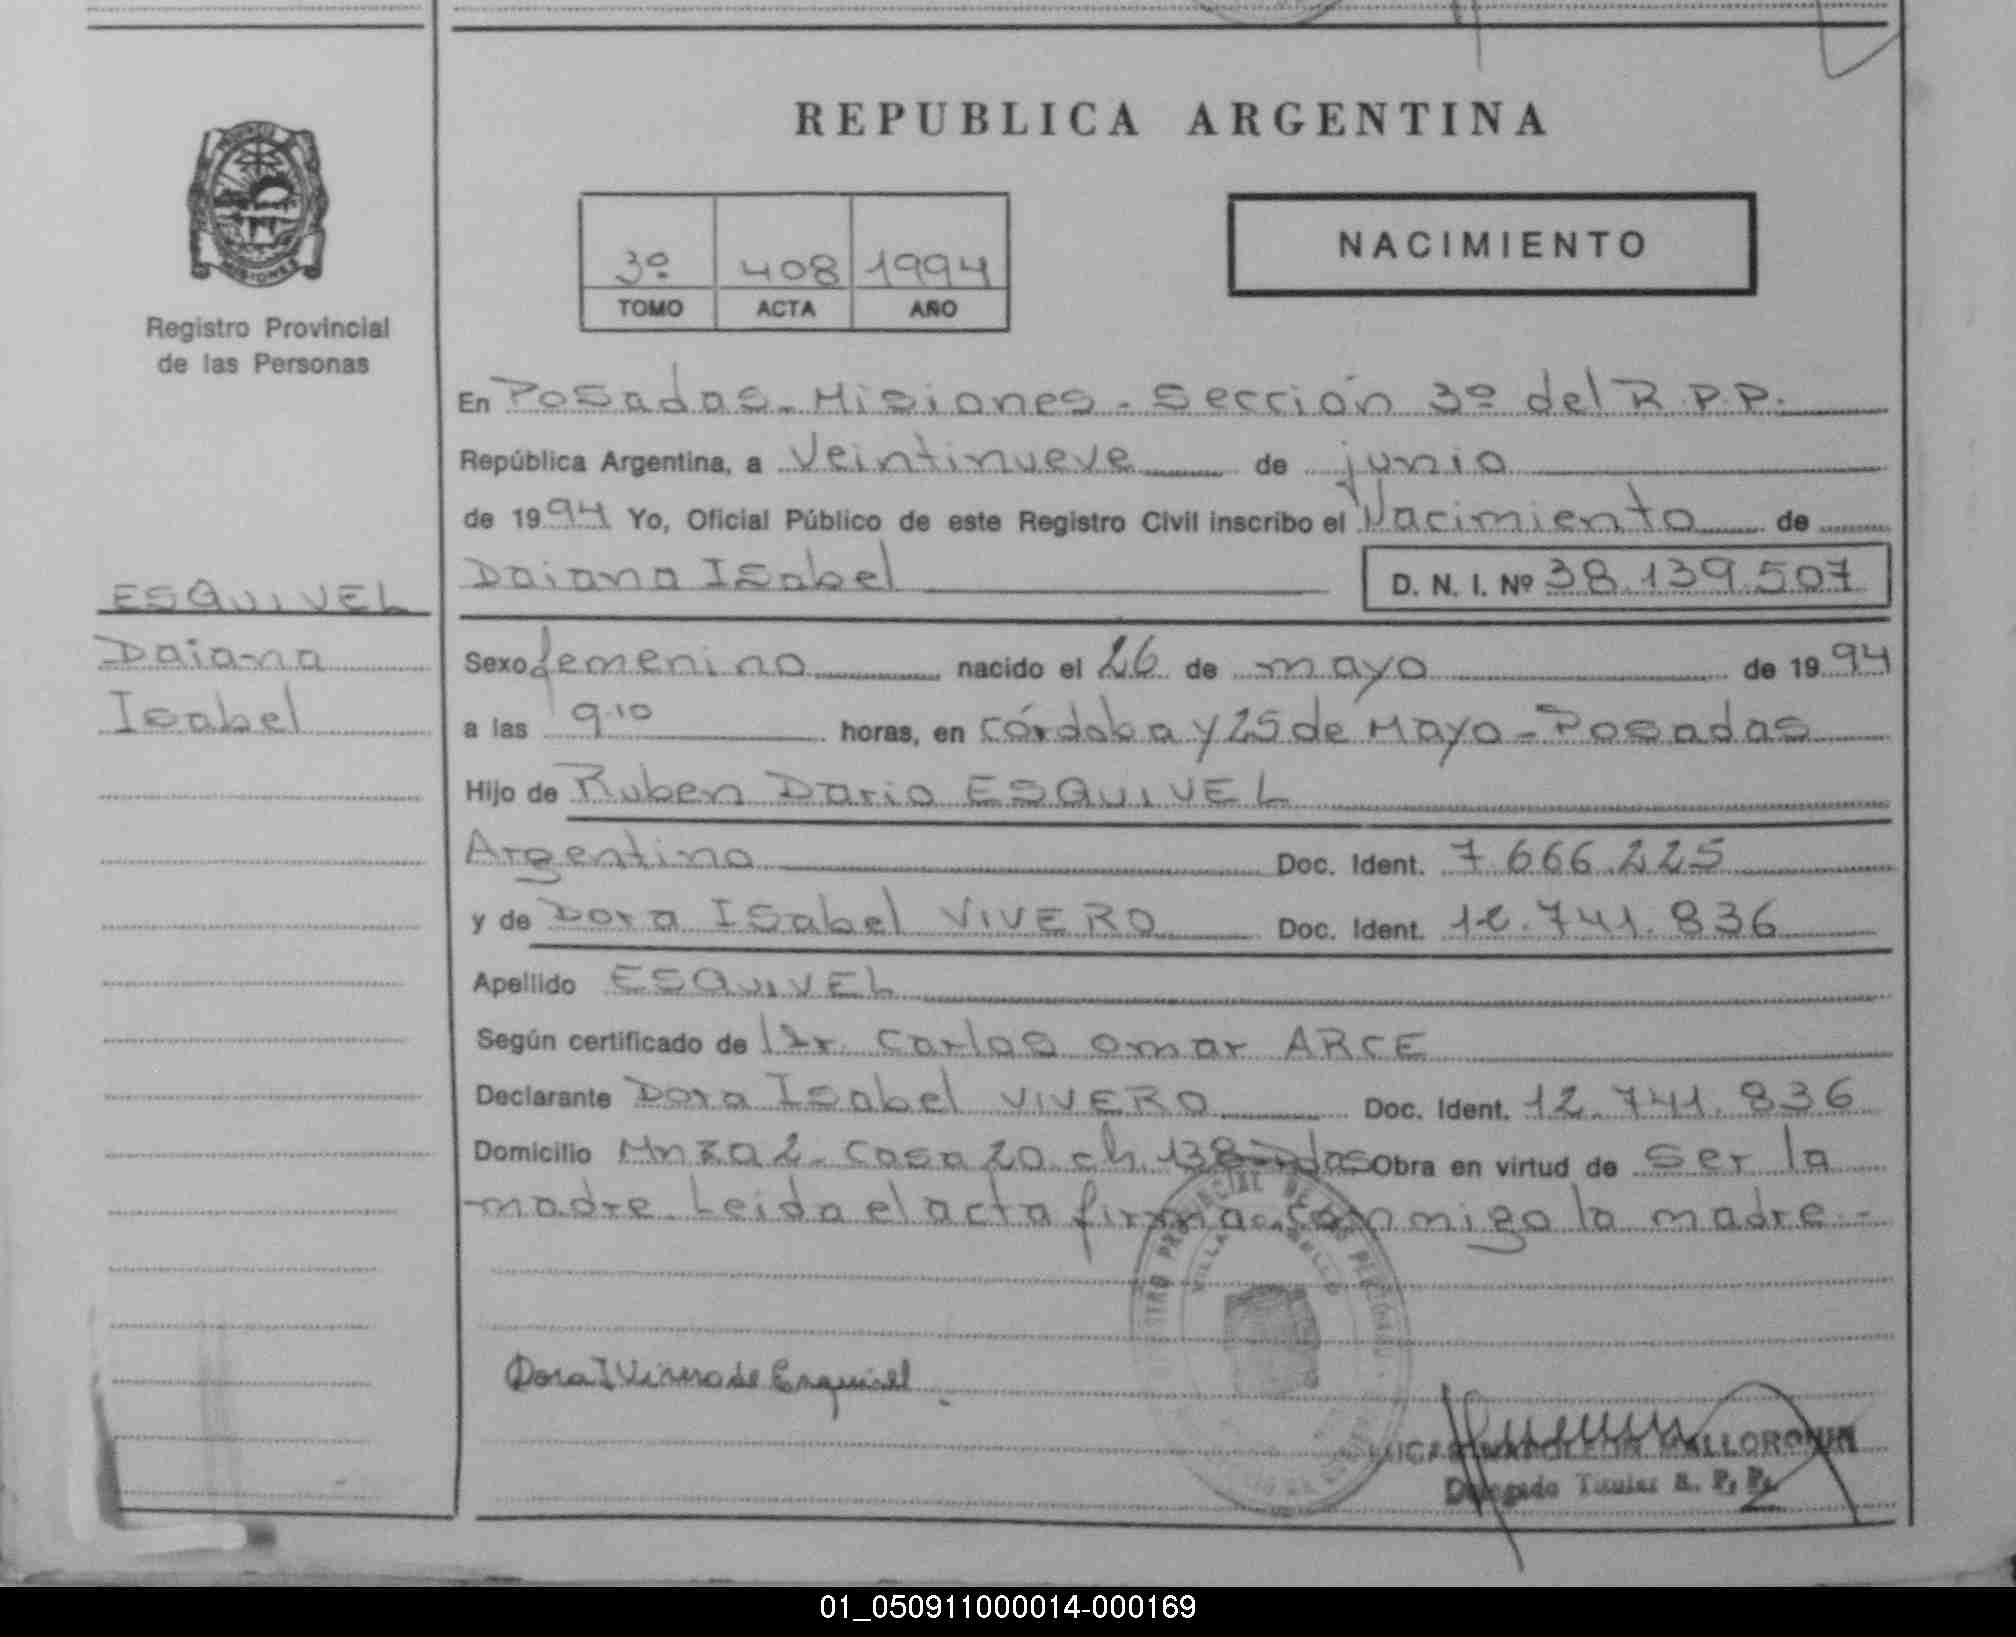 REPUBLICA ARGENTINA
MISIONES
Registro Provincial
de las Personas
3º 408 1994
TOMO ACTA AÑO
NACIMIENTO
En Posadas - Misiones - Sección 3º del R.P.P.
República Argentina, a Veintinueve de junio
de 1994 Yo, Oficial Público de este Registro Civil inscribo el Nacimiento de
Daiana Isabel D. N. I. Nº 38.139.507
ESQUIVEL
Daiana
Isabel
Sexo femenino nacido el 26 de mayo de 1994
a las 9.10 horas, en Córdoba y 25 de Mayo - Posadas
Hijo de Ruben Dario ESQUIVEL
Argentino Doc. Ident. 7.666.225
y de Dora Isabel VIVERO Doc. Ident. 12.741.836
Apellido ESQUIVEL
Según certificado de Dr. Carlos Omar ARCE
Declarante Dora Isabel VIVERO Doc. Ident. 12.741.836
Domicilio Mnza 2 - Casa 20 ch. 138 - Pdas Obra en virtud de ser la
madre. Leida el acta firma conmigo la madre -
Dora I Vivero de Esquivel
Delegado Titular R. P. P.
01_050911000014-000169